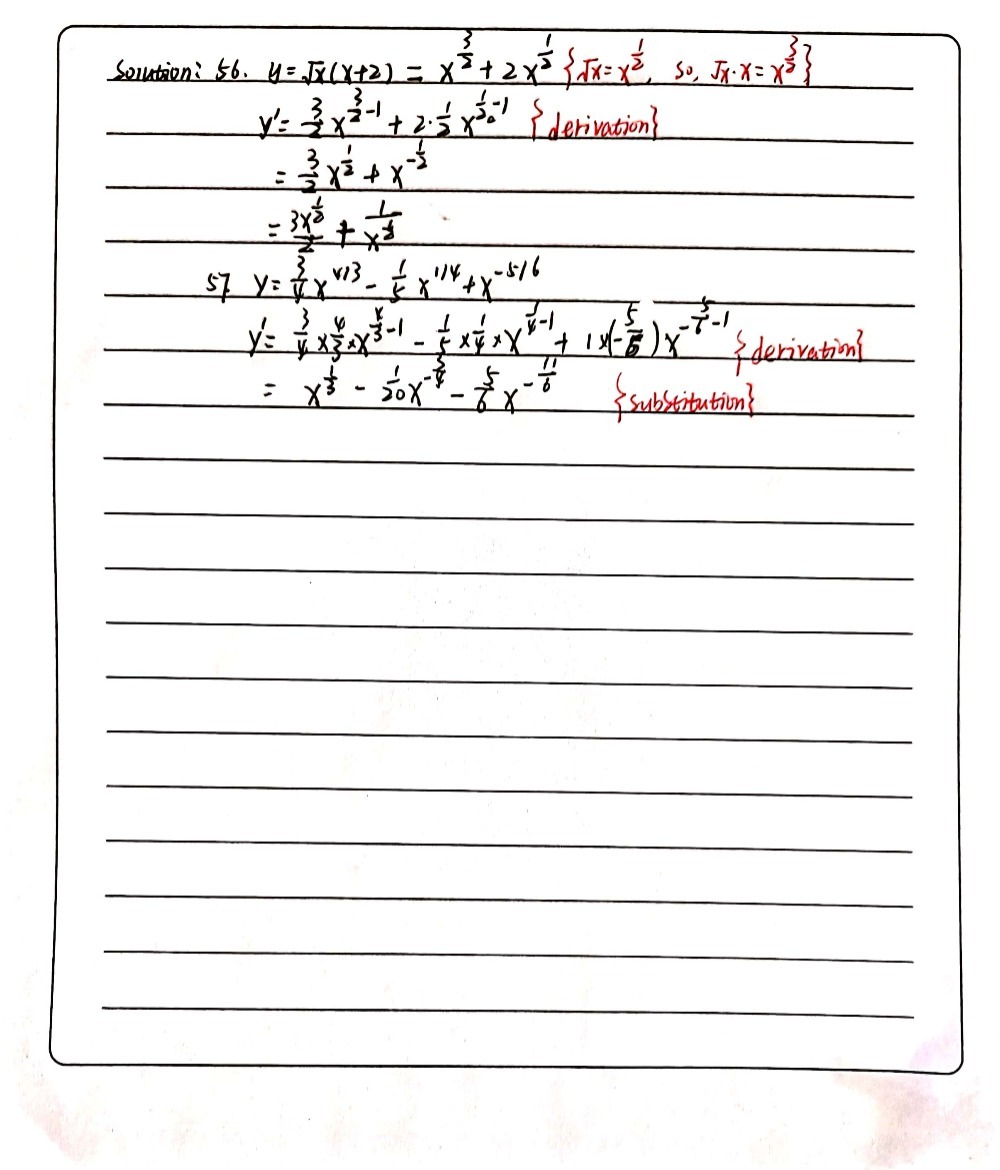 Solution: 56. y = √x(x+2) = x^{3/2} + 2x^{1/2} {√x = x^{1/2}, so, √x·x = x^{3/2}}
y' = 3/2 x^{3/2-1} + 2·1/2 x^{1/2-1} {derivation}
= 3/2 x^{1/2} + x^{-1/2}
= 3x^{1/2}/2 + 1/x^{1/2}
57 y = 3/4 x^{4/3} - 1/5 x^{1/4} + x^{-5/6}
y' = 3/4 × 4/3 × x^{4/3-1} - 1/5 × 1/4 × x^{1/4-1} + 1×(-5/6)x^{-5/6-1} {derivation}
= x^{1/3} - 1/20 x^{-3/4} - 5/6 x^{-11/6} {substitution}